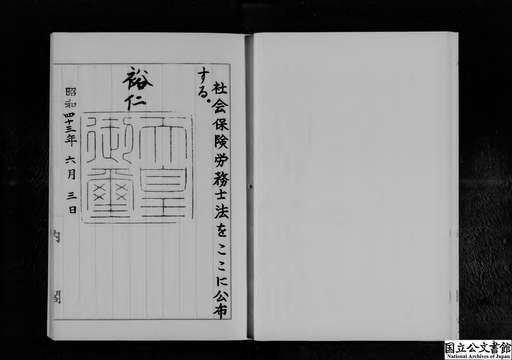 社会保険労務士法をここに公布
する。
裕仁
天皇
御璽
昭和四十三年 六月 三日
内
閣
国立公文書館
National Archives of Japan